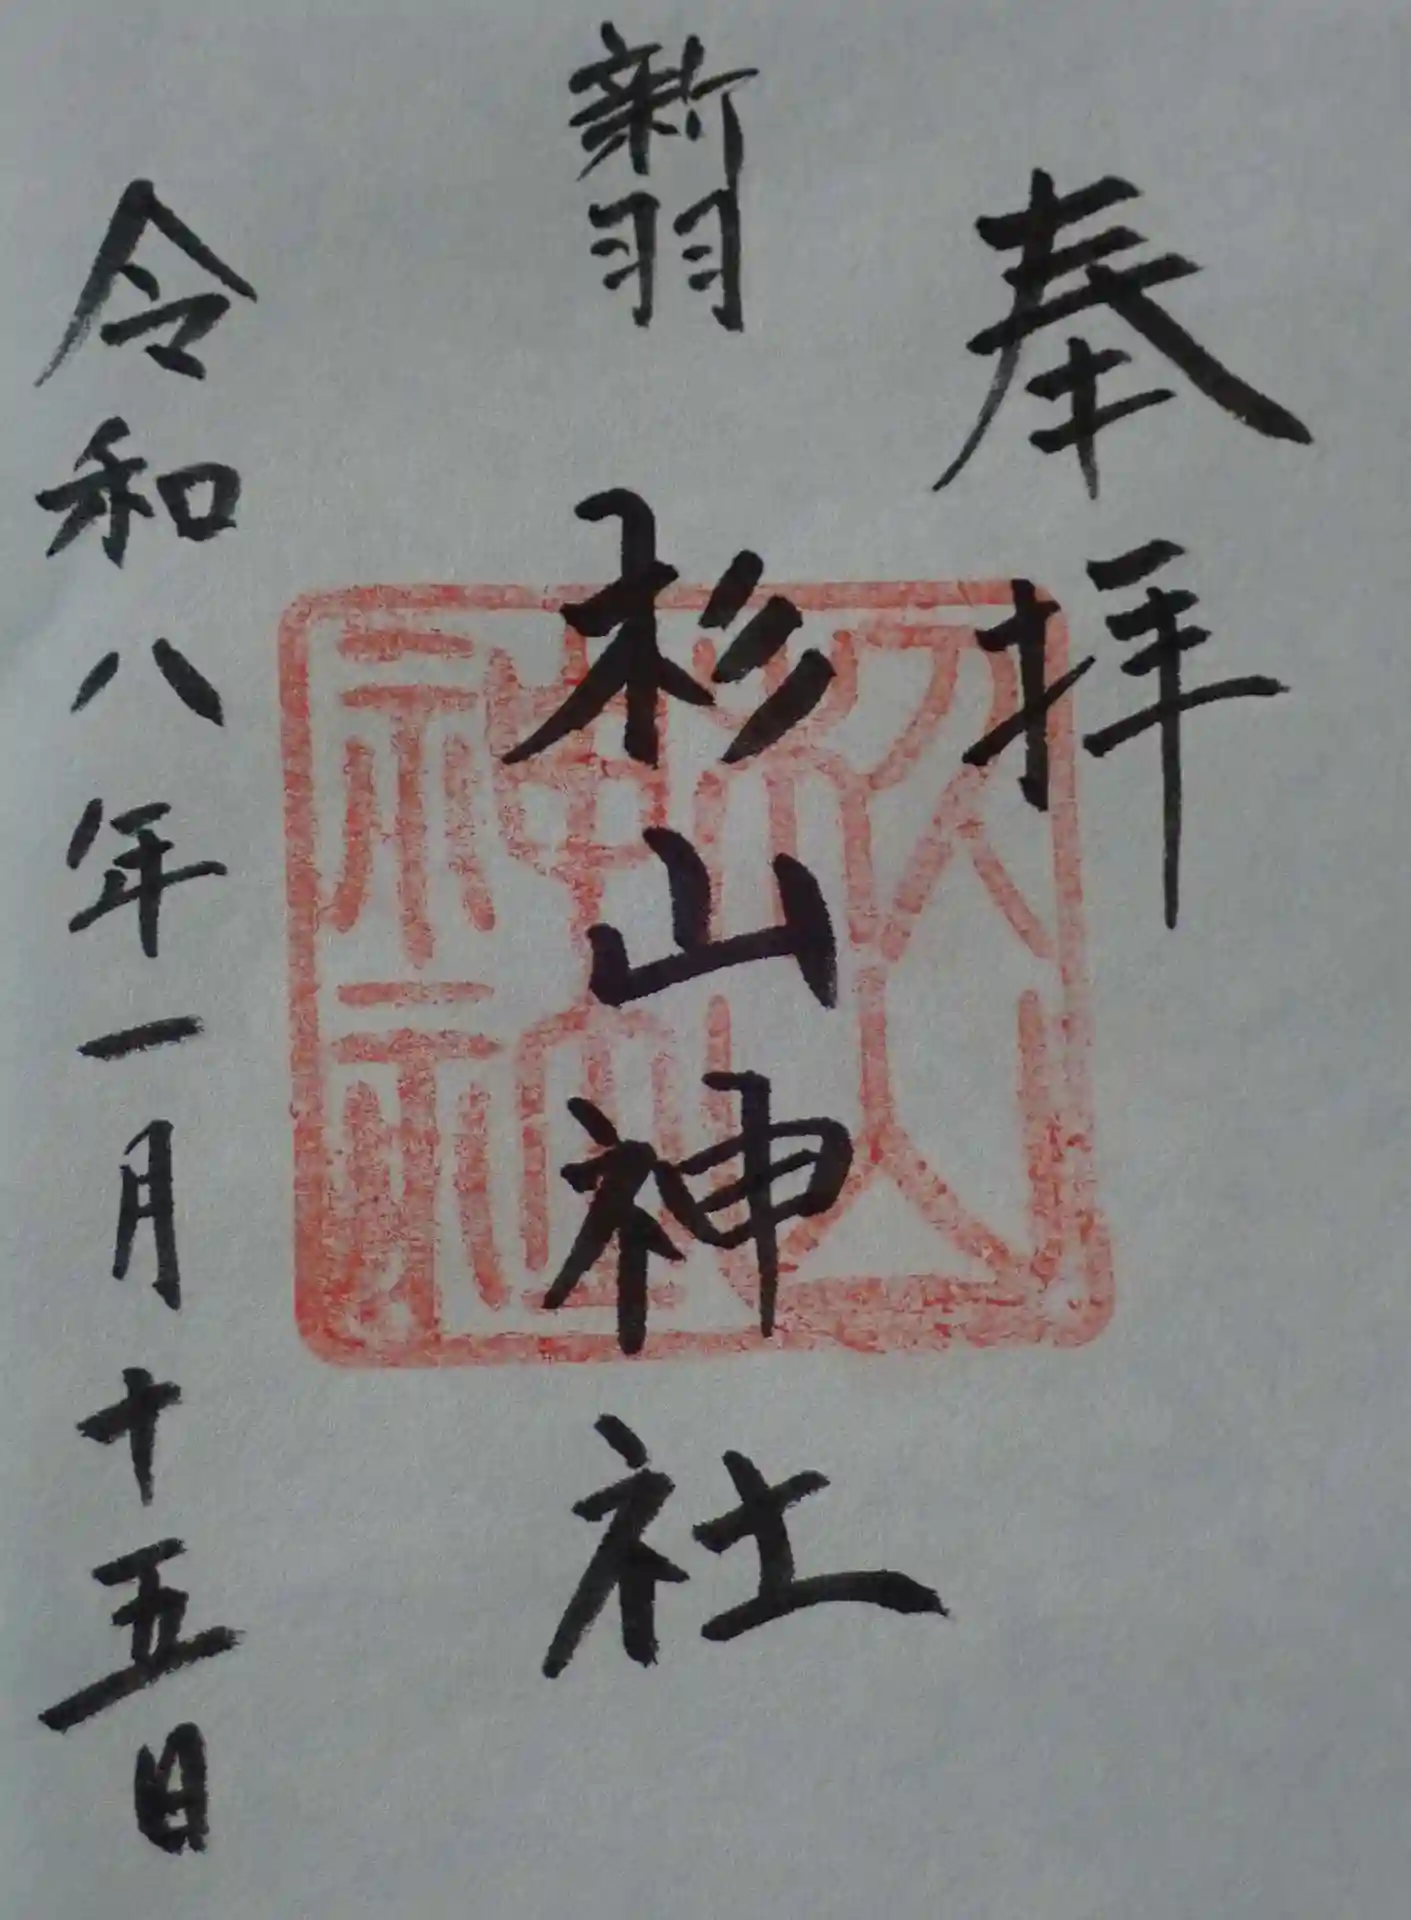 奉拝
新羽
杉山神社
令和八年一月十五日